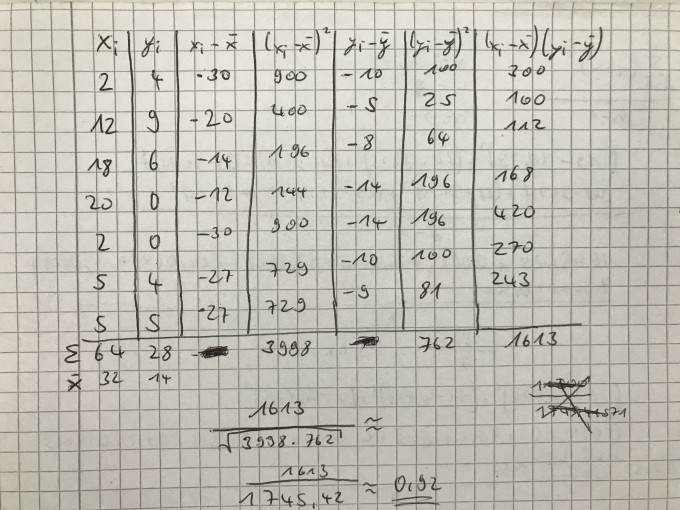 xi yi xi - x̄ (xi - x̄)² yi - ȳ (yi - ȳ)² (xi - x̄)(yi - ȳ)
2 4 -30 900 -10 100 300
12 9 -20 400 -5 25 100
18 6 -14 196 -8 64 112
20 0 -12 144 -14 196 168
2 0 -30 900 -14 196 420
5 4 -27 729 -10 100 270
5 5 -27 729 -9 81 243
Σ 64 28 3998 762 1613
x̄ 32 14
1613
√3998 · 762 ≈
1613
1745,42 ≈ 0,92